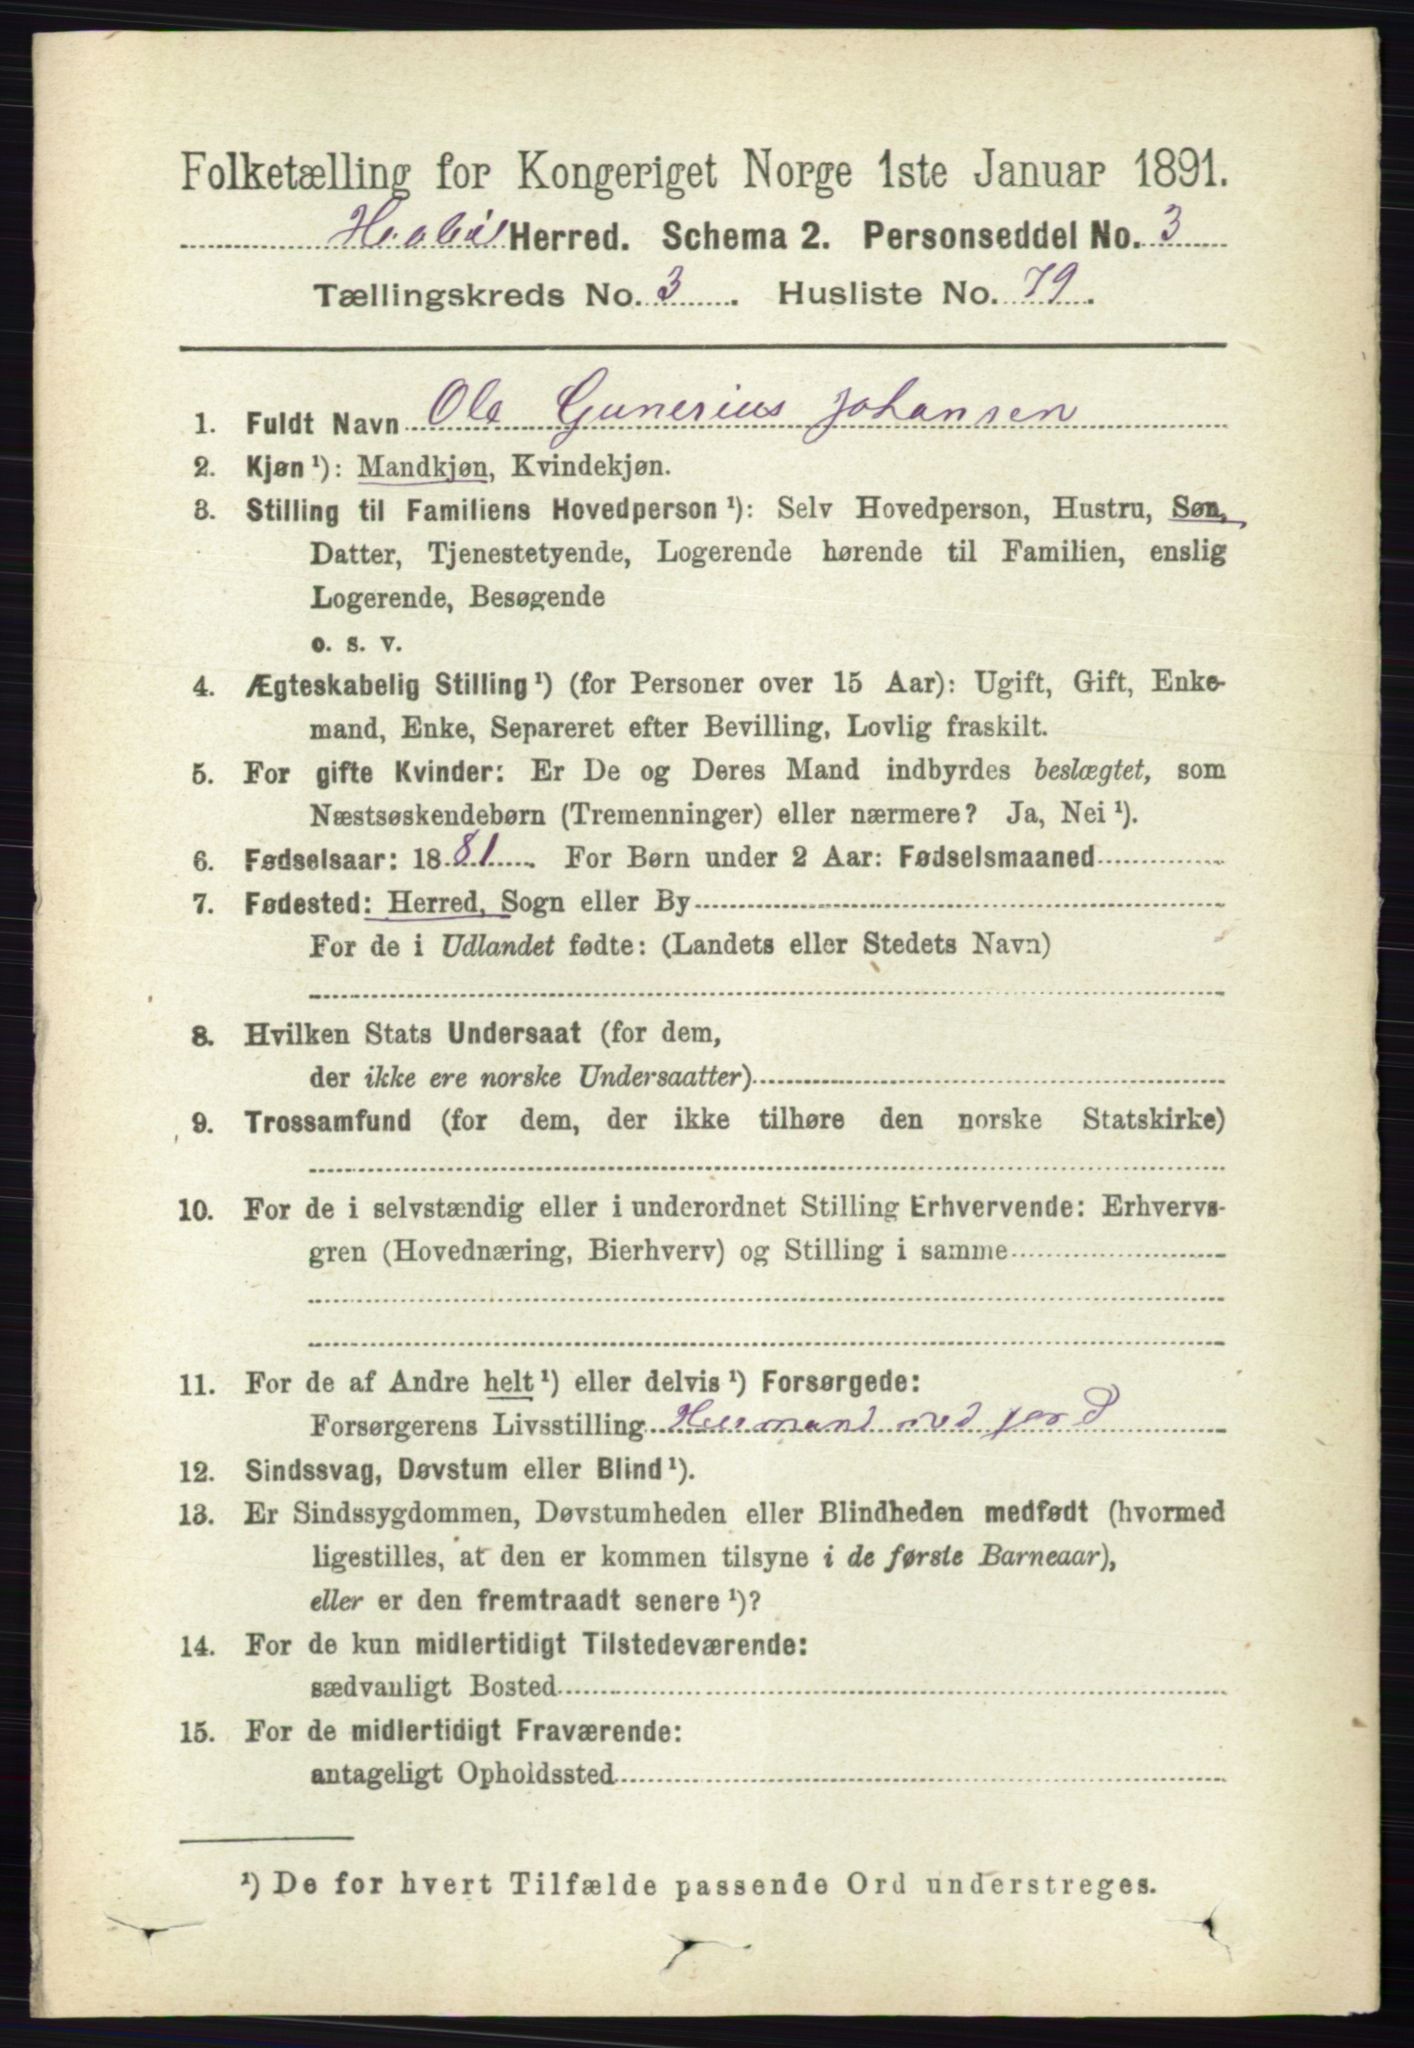 Folketælling for Kongeriget Norge 1ste Januar 1891.
Haabøl Herred. Schema 2. Personseddel No. 3
Tællingskreds No. 3. Husliste No. 79.
1. Fuldt Navn Ole Gunerius Johansen
2. Kjøn ¹): Mandkjøn, Kvindekjøn.
3. Stilling til Familiens Hovedperson ¹): Selv Hovedperson, Hustru, Søn,
Datter, Tjenestetyende, Logerende hørende til Familien, enslig
Logerende, Besøgende
o. s. v.
4. Ægteskabelig Stilling ¹) (for Personer over 15 Aar): Ugift, Gift, Enke-
mand, Enke, Separeret efter Bevilling, Lovlig fraskilt.
5. For gifte Kvinder: Er De og Deres Mand indbyrdes beslægtet, som
Næstsøskendebørn (Tremenninger) eller nærmere? Ja, Nei ¹).
6. Fødselsaar: 1881. For Børn under 2 Aar: Fødselsmaaned
7. Fødested: Herred, Sogn eller By
For de i Udlandet fødte: (Landets eller Stedets Navn)
8. Hvilken Stats Undersaat (for dem,
der ikke ere norske Undersaatter)
9. Trossamfund (for dem, der ikke tilhøre den norske Statskirke)
10. For de i selvstændig eller i underordnet Stilling Erhvervende: Erhvervs-
gren (Hovednæring, Bierhverv) og Stilling i samme
11. For de af Andre helt ¹) eller delvis ¹) Forsørgede:
Forsørgerens Livsstilling Husmand med jord
12. Sindssvag, Døvstum eller Blind ¹).
13. Er Sindssygdommen, Døvstumheden eller Blindheden medfødt (hvormed
ligestilles, at den er kommen tilsyne i de første Barneaar),
eller er den fremtraadt senere ¹)?
14. For de kun midlertidigt Tilstedeværende:
sædvanligt Bosted
15. For de midlertidigt Fraværende:
antageligt Opholdssted
¹) De for hvert Tilfælde passende Ord understreges.